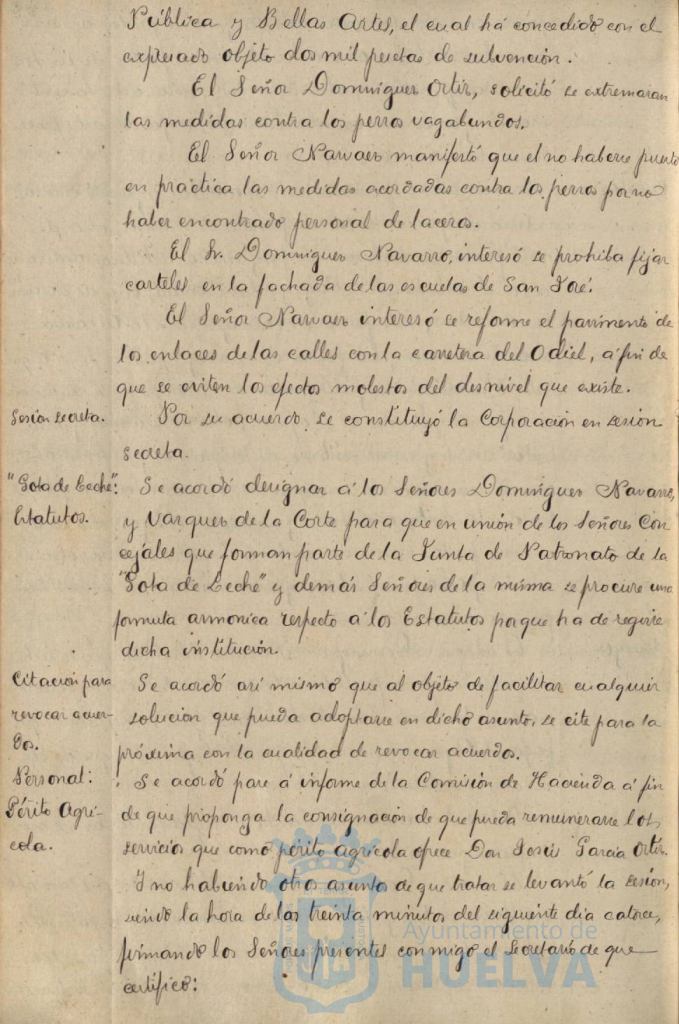 Pública y Bellas Artes, el cual há concedido con el
expresado objeto dos mil pesetas de subvención.
El Señor Dominguez Ortiz, solicitó se extremaran
las medidas contra los perros vagabundos.
El Señor Narvaez manifestó que el no haberse puesto
en practica las medidas acordadas contra los perros por no
haber encontrado personal de laceros.
El Sr. Dominguez Navarro, interesó se prohiba fijar
carteles en la fachada de las escuelas de San José.
El Señor Narvaez interesó se reforme el pavimento de
los enlaces de las calles con la carretera del Odiel, á fin de
que se eviten los efectos molestos del desnivel que existe.
Sesión secreta.
Por su acuerdo se constituyó la Corporación en sesión
secreta.
"Gota de Leche":
Estatutos.
Se acordó designar á los Señores Dominguez Navarro,
y Vazquez de la Corte para que en unión de los Señores Con
cejales que forman parte de la Junta de Patronato de la
"Gota de Leche" y demás Señores de la misma se procure una
formula armonica respecto á los Estatutos porque ha de regirse
dicha institución.
Citación para
revocar acuer-
dos.
Se acordó así mismo que al objeto de facilitar cualquier
solución que pueda adoptarse en dicho asunto, se cite para la
próxima con la cualidad de revocar acuerdos.
Personal:
Périto Agrí-
cola.
Se acordó pase á informe de la Comisión de Hacienda á fin
de que proponga la consignación de que pueda remunerarse los
servicios que como périto agrícola ofrece Don Jesús García Ortiz.
Y no habiendo otros asuntos de que tratar se levantó la sesión,
siendo la hora de las treinta minutos del siguiente dia catorce,
firmando los Señores presentes conmigo el Secretario de que
certifico:
Ayuntamiento de
HUELVA